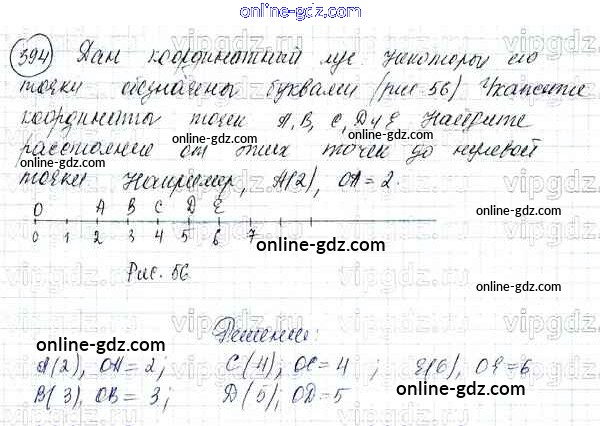 online-gdz.com
394 Дан координатный луч. Некоторые его
точки обозначены буквами (рис 56) Укажите
координаты точек A, B, C, D и E Найдите
расстояние от этих точек до нулевой
точки Например, A(2), OA = 2.
O A B C D E
0 1 2 3 4 5 6 7
Рис. 56
Решение:
A(2), OA = 2; C(4); OC = 4; E(6), OE = 6
B(3), OB = 3; D(5); OD = 5
online-gdz.com
online-gdz.com
online-gdz.com
online-gdz.com
online-gdz.com
online-gdz.com